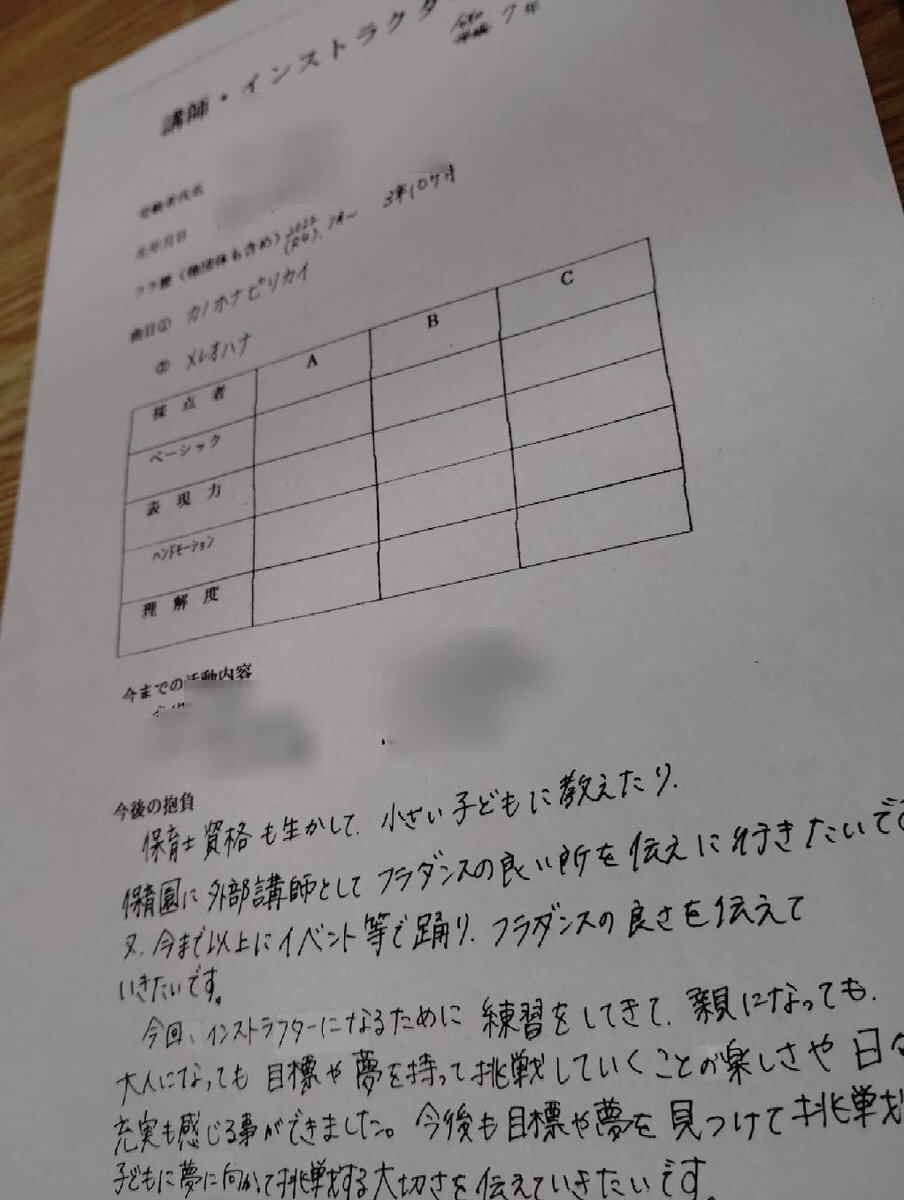 講師・インストラクタ
7年
受験者氏名
生年月日
フラ歴（他団体も含め）2022(R4).1月〜 3年10ヶ月
曲目① カノホナピリカイ
② メレオハナ
採点者 A B C
ベーシック
表現力
ハンドモーション
理解度
今までの活動内容
今後の抱負
保育士資格も生かして、小さい子どもに教えたり、
保育園に外部講師としてフラダンスの良い所を伝えに行きたいで
又、今まで以上にイベント等で踊り、フラダンスの良さを伝えて
いきたいです。
今回、インストラクターになるために練習をしてきて、親になっても、
大人になっても目標や夢を持って挑戦していくことの楽しさや日々
充実も感じる事ができました。今後も目標や夢を見つけて挑戦
子どもに夢に向かって挑戦する大切さを伝えていきたいです